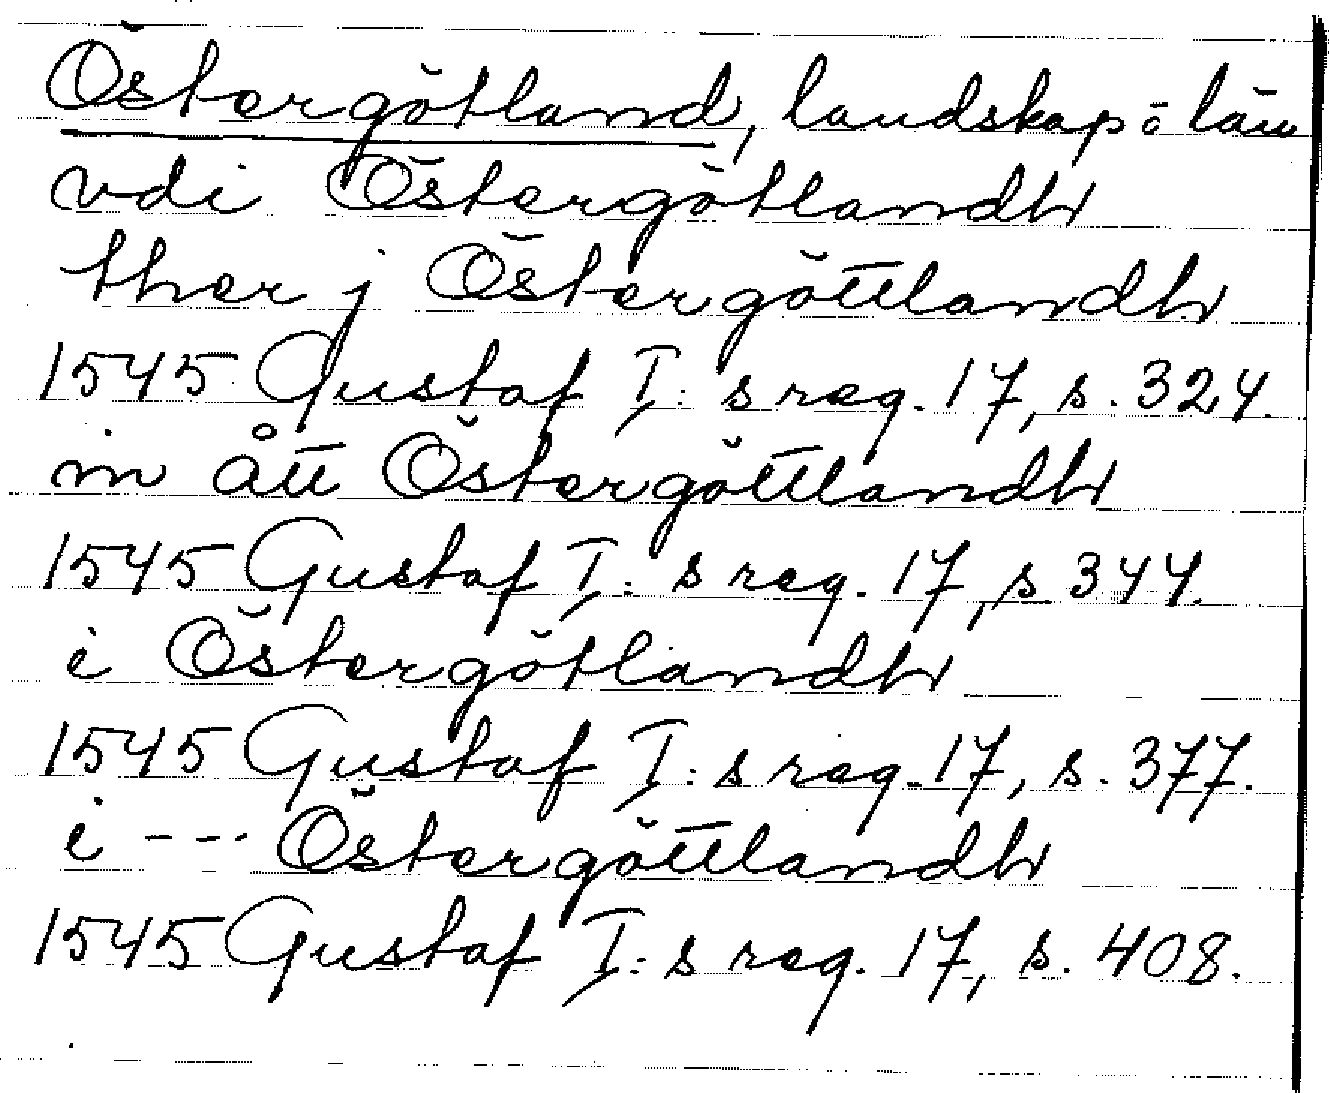 Östergötland, landskap o län
vdi Östergötlandh
ther j Östergöttlandh
1545 Gustaf I:s reg. 17, s. 324.
in ått Östergöttlandh
1545 Gustaf I:s reg. 17, s 344.
i Östergötlandh
1545 Gustaf I:s reg. 17, s. 377.
i --- Östergöttlandh
1545 Gustaf I:s reg. 17, s. 408.